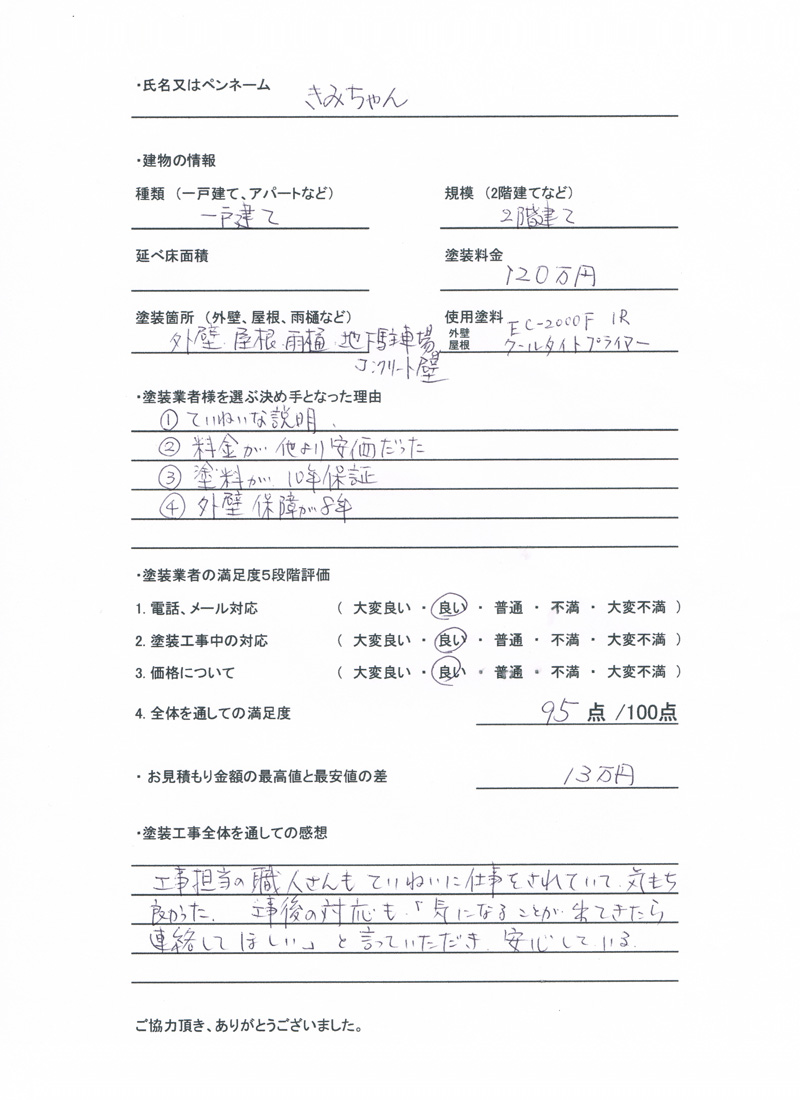 ・氏名又はペンネーム きみちゃん
・建物の情報
種類（一戸建て、アパートなど） 規模（2階建てなど）
一戸建て 2階建て
延べ床面積 塗装料金
120万円
塗装箇所（外壁、屋根、雨樋など） 使用塗料
外壁.屋根.雨樋.地下駐車場 外壁 EC-2000F IR
コンクリート壁 屋根 クールタイトプライマー
・塗装業者様を選ぶ決め手となった理由
① ていねいな説明、
② 料金が他より安価だった
③ 塗料が10年保証
④ 外壁保障が8年
・塗装業者の満足度5段階評価
1. 電話、メール対応 （ 大変良い ・ 良い ・ 普通 ・ 不満 ・ 大変不満 ）
2. 塗装工事中の対応 （ 大変良い ・ 良い ・ 普通 ・ 不満 ・ 大変不満 ）
3. 価格について （ 大変良い ・ 良い ・ 普通 ・ 不満 ・ 大変不満 ）
4. 全体を通しての満足度 95 点 /100点
・お見積もり金額の最高値と最安値の差 13万円
・塗装工事全体を通しての感想
工事担当の職人さんもていねいに仕事をされていて.気もち
良かった. 工事後の対応も.「気になることが出てきたら
連絡してほしい」と言っていただき.安心している.
ご協力頂き、ありがとうございました。